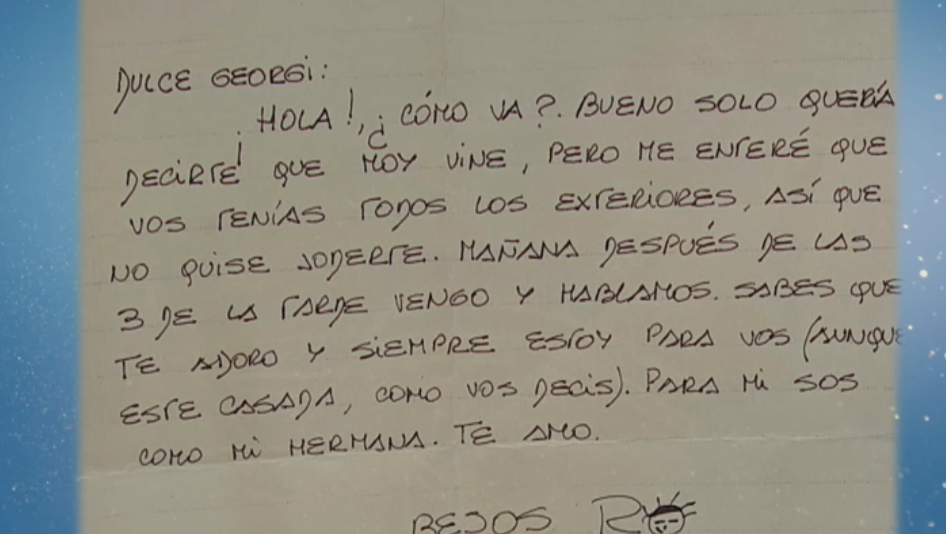 DULCE GEORGI:
¡HOLA!, ¿CÓMO VA?. BUENO SOLO QUERÍA
DECIRTE QUE HOY VINE, PERO ME ENTERÉ QUE
VOS TENÍAS TODOS LOS EXTERIORES, ASÍ QUE
NO QUISE JODERTE. MAÑANA DESPUÉS DE LAS
3 DE LA TARDE VENGO Y HABLAMOS. SABES QUE
TE ADORO Y SIEMPRE ESTOY PARA VOS (AUNQUE
ESTE CASADA, COMO VOS DECIS). PARA MI SOS
COMO MI HERMANA. TE AMO.
BESOS RO